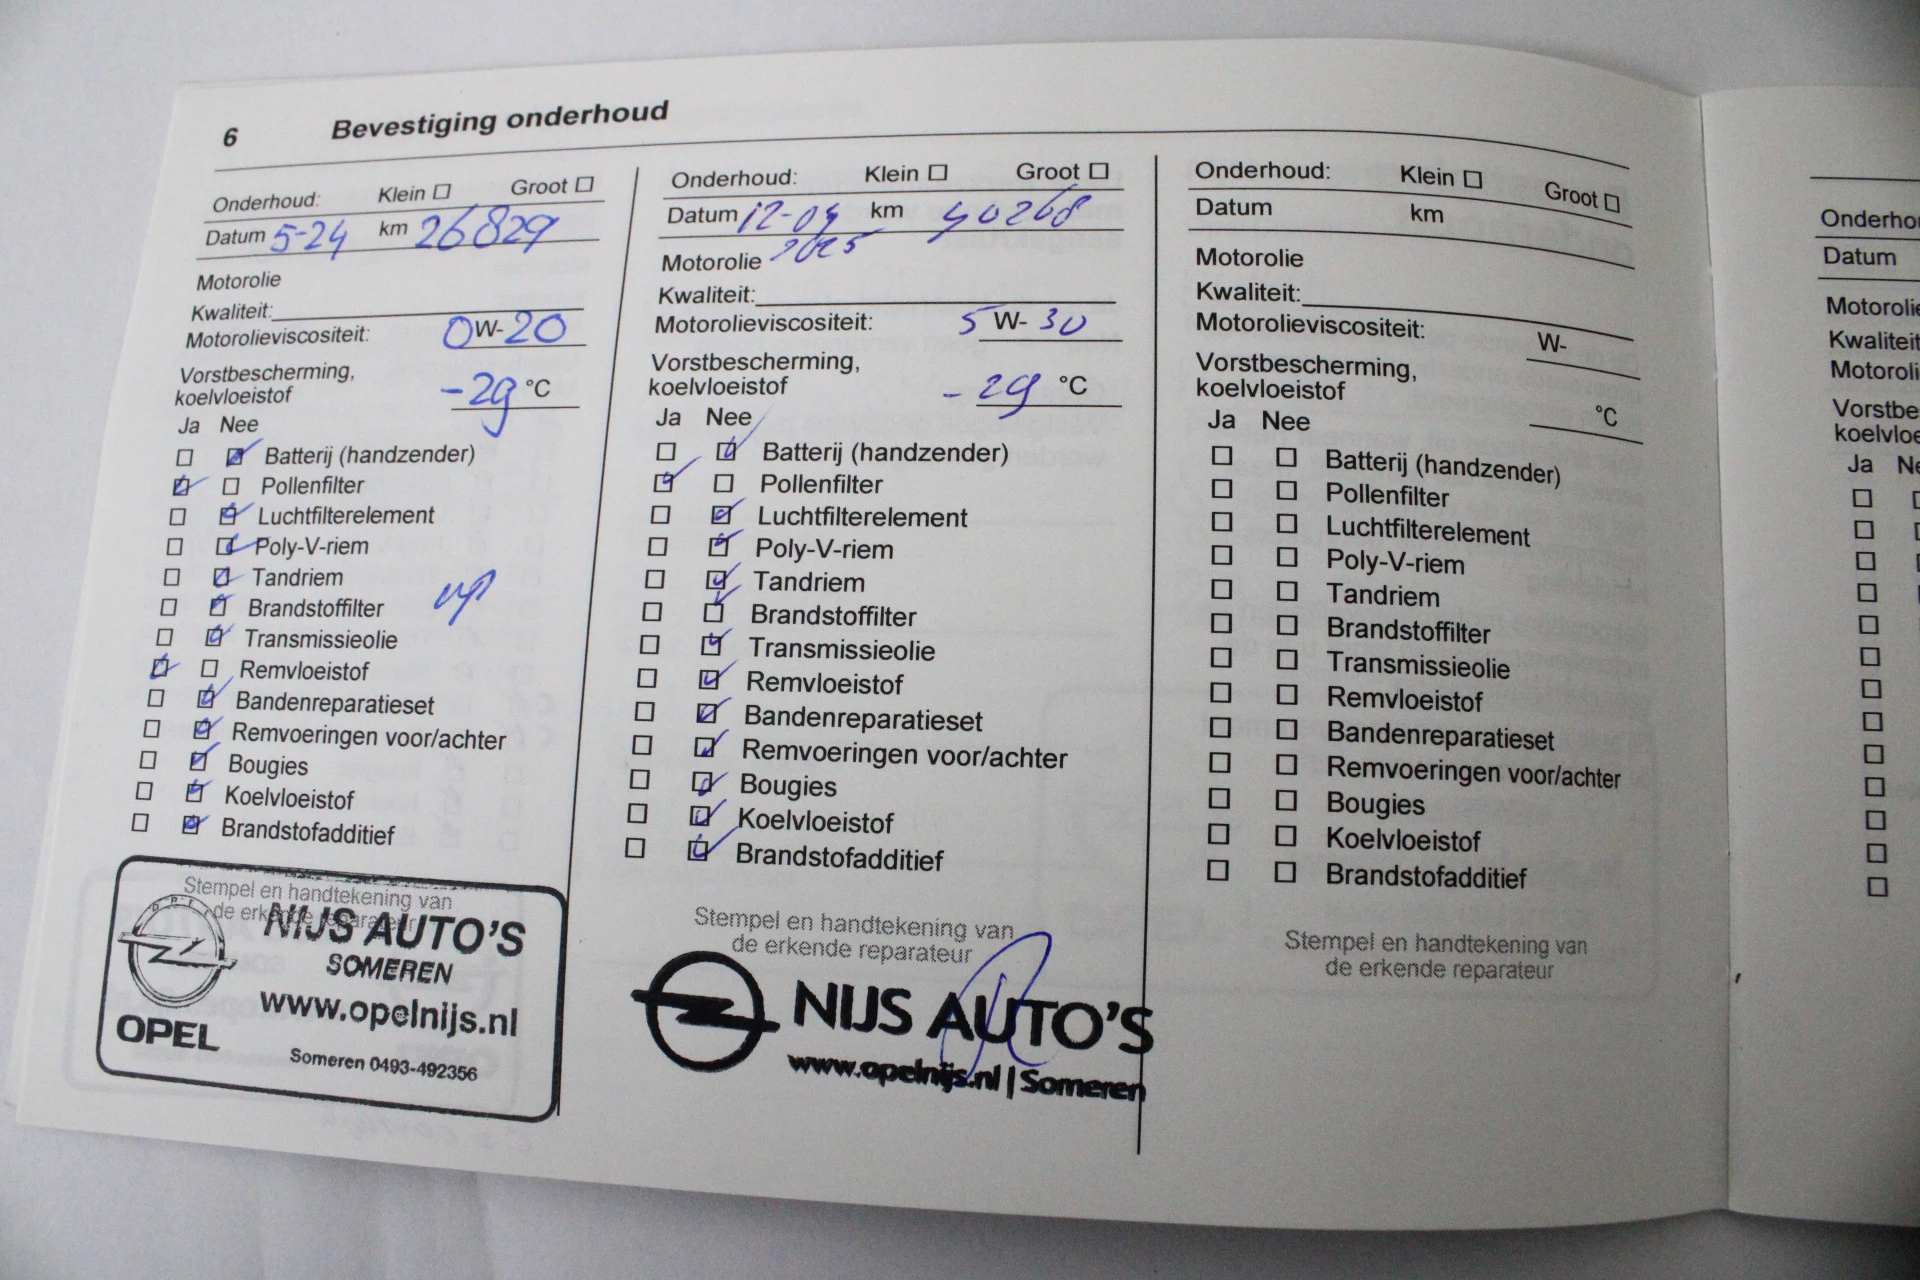 6 Bevestiging onderhoud
Onderhoud: Klein ☐ Groot ☐
Datum 5-24 km 26829
Motorolie
Kwaliteit:
Motorolieviscositeit: 0W-20
Vorstbescherming,
koelvloeistof -29 °C
Ja Nee
Batterij (handzender)
Pollenfilter
Luchtfilterelement
Poly-V-riem
Tandriem
Brandstoffilter
Transmissieolie
Remvloeistof
Bandenreparatieset
Remvoeringen voor/achter
Bougies
Koelvloeistof
Brandstofadditief
Stempel en handtekening van
de erkende reparateur
NIJS AUTO'S
SOMEREN
www.opelnijs.nl
OPEL
Someren 0493-492356
Onderhoud: Klein ☐ Groot ☐
Datum 12-04 km 40268
2025
Motorolie
Kwaliteit:
Motorolieviscositeit: 5 W- 30
Vorstbescherming,
koelvloeistof -29 °C
Ja Nee
Batterij (handzender)
Pollenfilter
Luchtfilterelement
Poly-V-riem
Tandriem
Brandstoffilter
Transmissieolie
Remvloeistof
Bandenreparatieset
Remvoeringen voor/achter
Bougies
Koelvloeistof
Brandstofadditief
Stempel en handtekening van
de erkende reparateur
NIJS AUTO'S
www.opelnijs.nl | Someren
Onderhoud: Klein ☐ Groot ☐
Datum km
Motorolie
Kwaliteit:
Motorolieviscositeit: W-
Vorstbescherming,
koelvloeistof °C
Ja Nee
Batterij (handzender)
Pollenfilter
Luchtfilterelement
Poly-V-riem
Tandriem
Brandstoffilter
Transmissieolie
Remvloeistof
Bandenreparatieset
Remvoeringen voor/achter
Bougies
Koelvloeistof
Brandstofadditief
Stempel en handtekening van
de erkende reparateur
Onderho
Datum
Motorolie
Kwaliteit
Motoroli
Vorstbe
koelvloe
Ja Ne